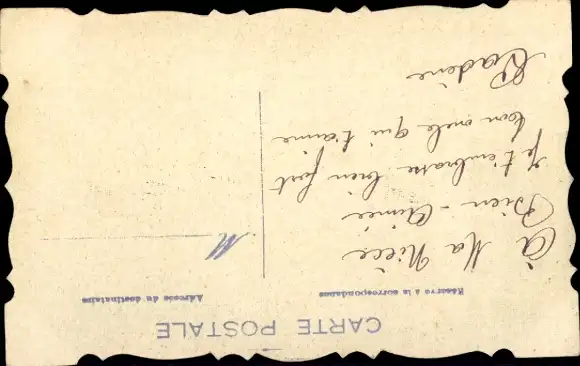 CARTE POSTALE
Réservé à la correspondance
Adresse du destinataire
M
À Ma Nièce
Bien-Aimée
Je t'embrasse bien fort
ton oncle qui t'aime